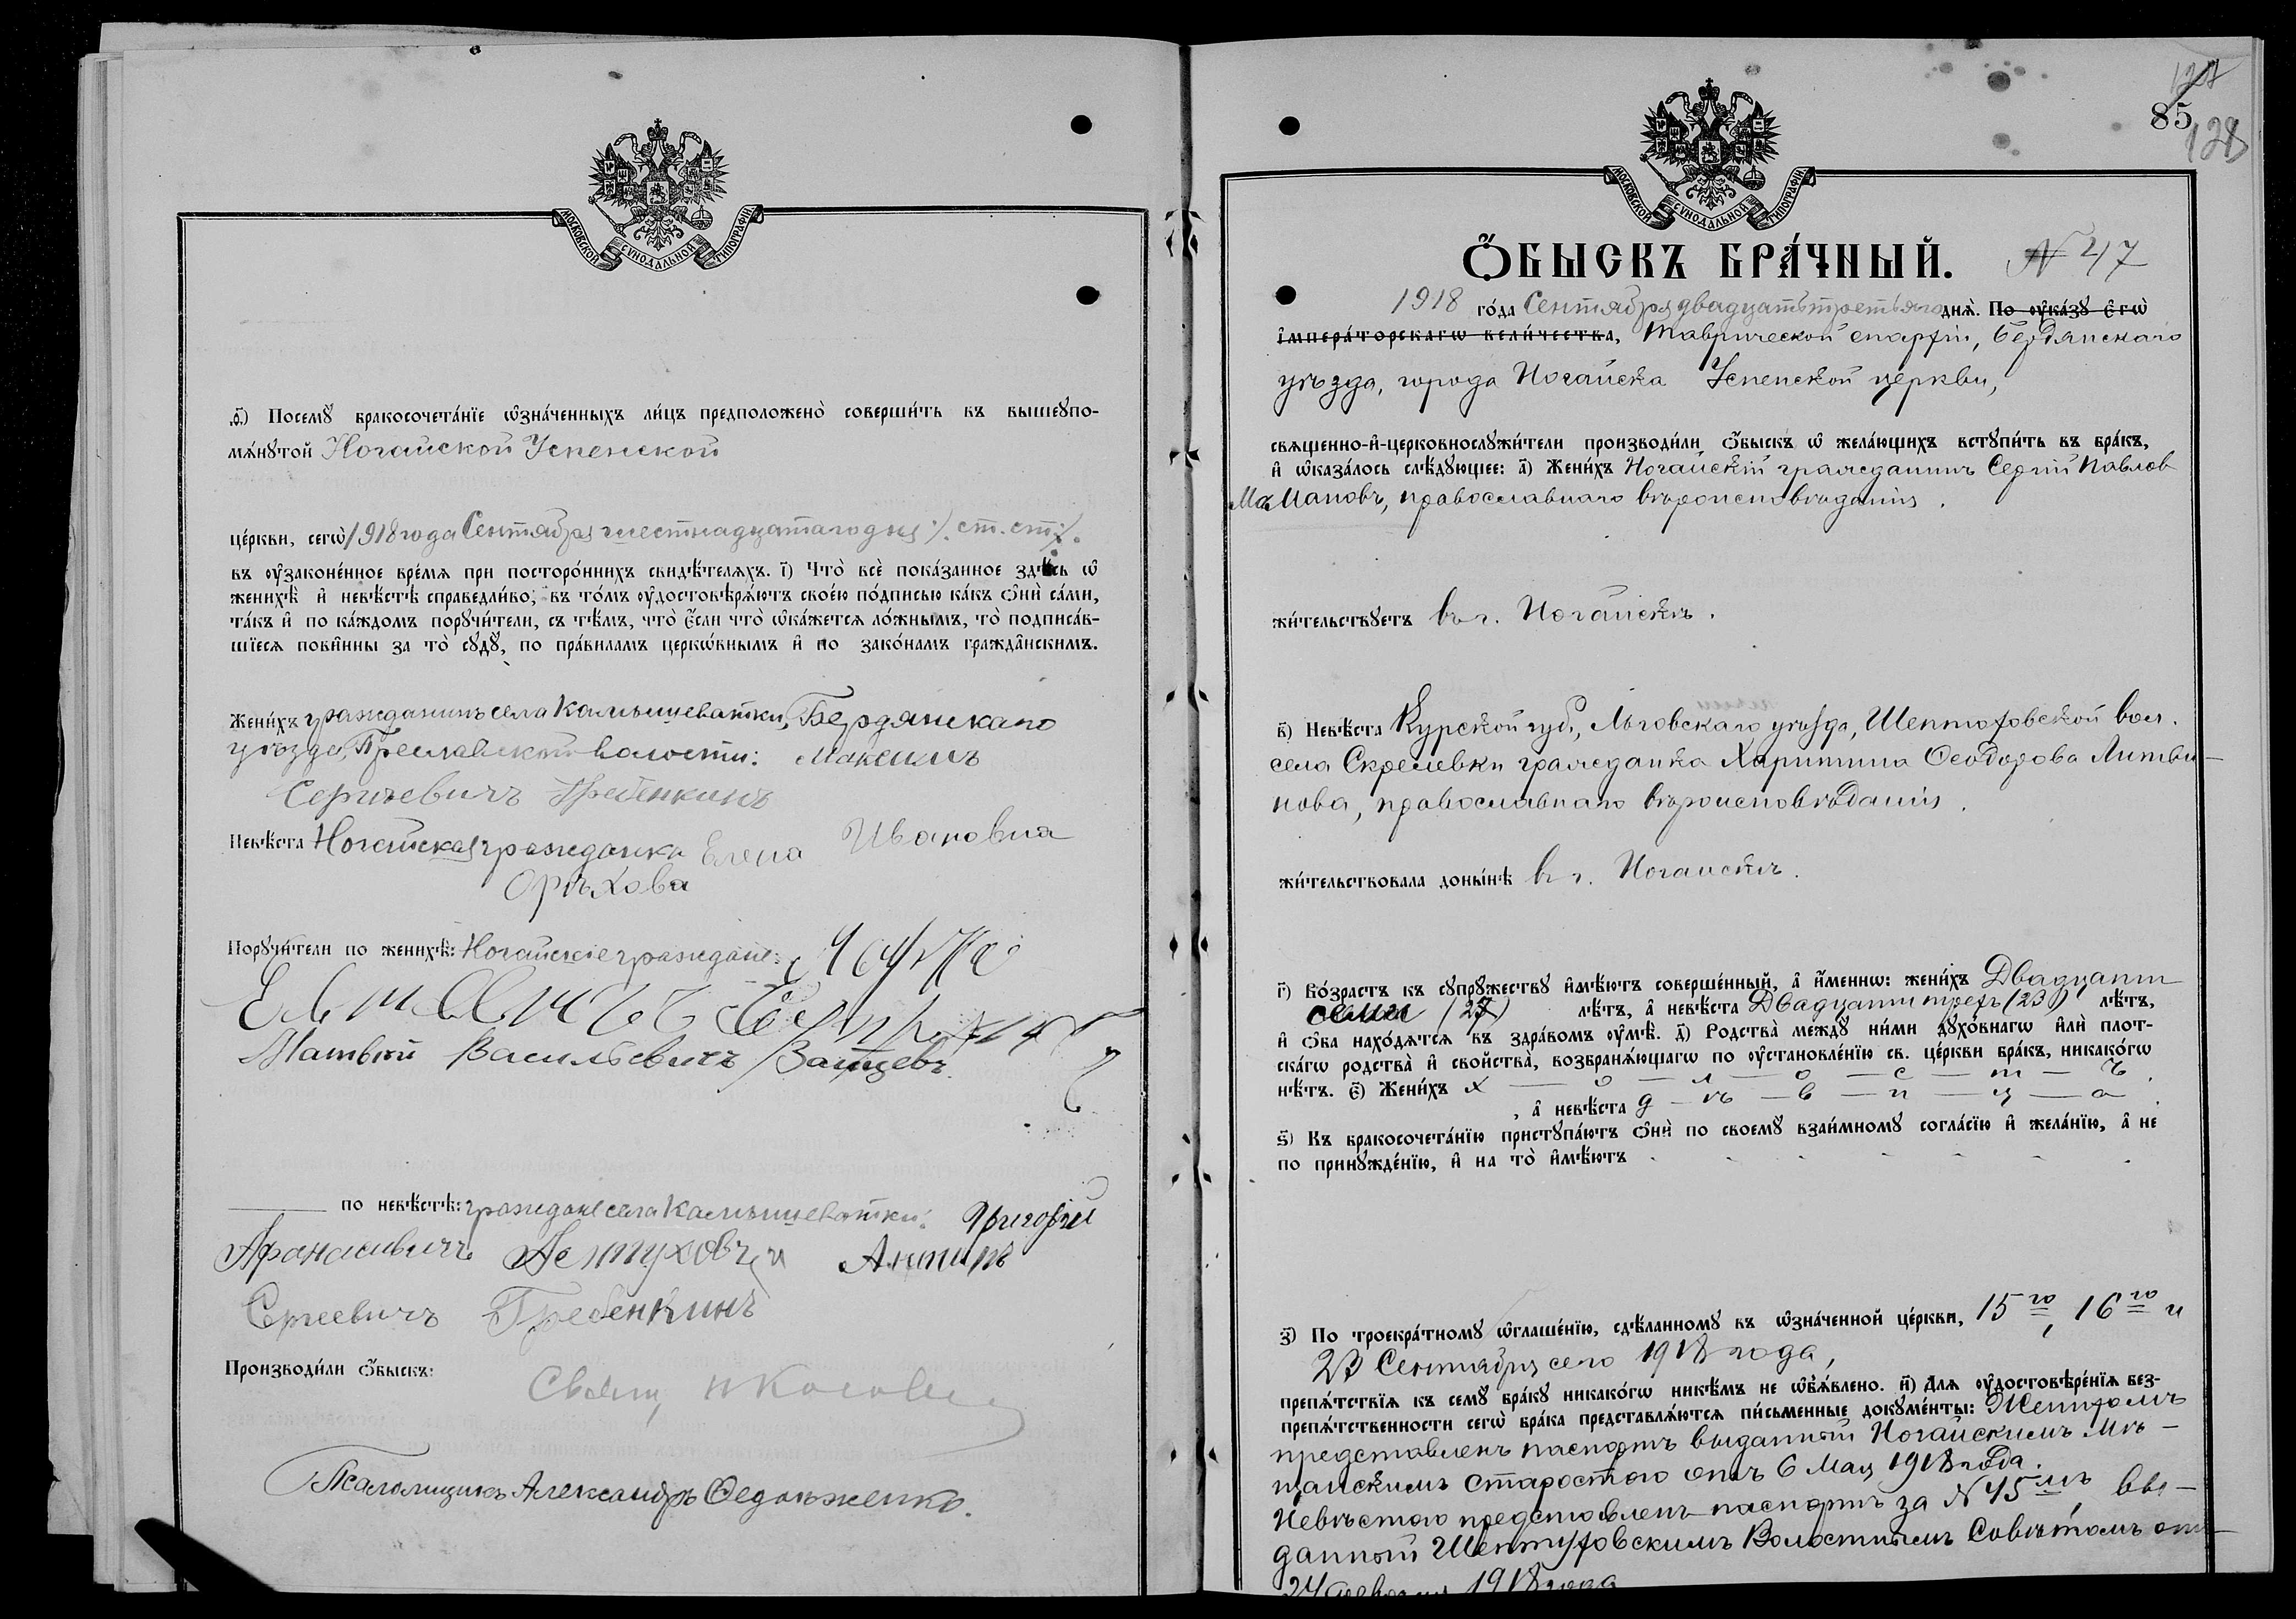 МОСКОВСКОЙ СѴНОДАЛЬНОЙ ТИПОГРАФІИ
ѳ҃) Посемꙋ бракосочета́нїе ѡ҆зна́ченныхъ ли́цъ предположено̀ соверши́ть въ вышеꙋпо-
мѧ́нꙋтой Ногайской Успенской
це́ркви, сегѡ̀ 1918 года Сентября шестнадцатаго дня /. ст. ст. /.
въ ᲂу҆законе́нное вре́мѧ при посторо́ннихъ свидѣ́телѧхъ. і҃) Что̀ всѐ пока́занное здѣ́сь ѡ҆
женихѣ̀ и҆ невѣ́стѣ справедли́во, въ то́мъ ᲂу҆достовѣрѧ́ютъ свое́ю по́дписью ка́къ ѻ҆нѝ са́ми,
та́къ и҆ по ка́ждомъ порꙋчи́тели, съ тѣ́мъ, что̀ є҆́сли что̀ ѡ҆ка́жетсѧ ло́жнымъ, то̀ подписа́в-
шїесѧ пови́нны за то̀ сꙋдꙋ̀, по пра́виламъ церкѡ́внымъ и҆ по зако́намъ гражда́нскимъ.
Жени́хъ гражданинъ села Камышеватки, Бердянскаго
уѣзда, Преславской волости: Максимъ
Сергѣевичъ Гребенкинъ
Невѣ́ста Ногайская гражданка Елена Ивановна
Орѣхова
Порꙋчи́тели по женихѣ̀: Ногайскіе граждане:
Матвѣй Васильевичъ Зайцевъ
по невѣ́стѣ: граждане села Камышеватки: Григорій
Афанасивичъ Пентуховъ и Антипъ
Сргеевичъ Гребенкинъ
Производи́ли ѻ҆́быскъ:
Свящ.
Псаломщикъ Александръ Ѳедоьженко.
127
85
128
МОСКОВСКОЙ СѴНОДАЛЬНОЙ ТИПОГРАФІИ
Ѻ҆́БЫСКЪ БРА́ЧНЫЙ. № 47
1918 го́да Сентября двадцать третьяго днѧ̀. По ᲂу҆ка́зꙋ Є҆гѡ̀
І҆мпера́торскагѡ вели́чества, Таврической епархіи, Бердянскаго
уѣзда, города Ногайска Успенской церкви,
свѧщенно-и҆-церковнослꙋжи́тели производи́ли ѻ҆́быскъ ѡ҆ жела́ющихъ встꙋпи́ть въ бра́къ,
и҆ ѡ҆каза́лось слѣ́дꙋющее: а҃) Жени́хъ Ногайскій гражданинъ Сергій Павлов
Мамановъ, православнаго вѣроисповѣданія.
жи́тельствꙋетъ въ г. Ногайскѣ.
в҃) Невѣ́ста Курской губ., Льговскаго уѣзда, Шептуховской вол.
села Скрелевки гражданка Харитина Ѳеодорова Литви-
нова, православнаго вѣроисповѣданія.
жи́тельствовала донынѣ въ г. Ногайскѣ.
г҃) Во́зрастъ къ сꙋпрꙋ́жествꙋ и҆мѣ́ютъ соверше́нный, а҆ и҆́меннѡ: жени́хъ Двадцати
семи (27) лѣ́тъ, а҆ невѣ́ста Двадцати трехъ (23) лѣ́тъ,
и҆ ѻ҆́ба нахо́дѧтсѧ въ здра́вомъ ᲂу҆мѣ̀. д҃) Родства̀ междꙋ̀ ни́ми дꙋхо́внагѡ и҆лѝ плот-
ска́гѡ родства̀ и҆ свойства̀, возбранѧ́ющагѡ по ᲂу҆становле́нїю св. це́ркви бра́къ, никако́гѡ
нѣ́тъ. є҃) Жени́хъ х — о — л — о — с — т — ъ.
, а҆ невѣ́ста д — ѣ — в — и — ц — а.
ѕ҃) Къ бракосочета́нїю пристꙋпа́ютъ ѻ҆нѝ по своемꙋ̀ взаи́мномꙋ согла́сїю и҆ жела́нїю, а҆ не
по принꙋжде́нїю, и҆ на то̀ и҆мѣ́ютъ - - - - - - -
з҃) По троекра́тномꙋ ѡ҆глаше́нїю, сдѣ́ланномꙋ въ ѡ҆зна́ченной це́ркви, 15го, 16го и
23 Сентября сего 1918 года,
препѧ́тствїѧ къ семꙋ̀ бра́кꙋ никако́гѡ никѣ́мъ не ѡ҆б̾ѧ́влено. и҃) Длѧ ᲂу҆достовѣре́нїѧ без-
препѧ́тственности сегѡ̀ бра́ка представлѧ́ютсѧ пи́сьменные докꙋме́нты: Женихомъ
представленъ паспортъ выданный Ногайскимъ Мѣ-
щанскимъ старостою отъ 6 Мая 1918 года.
Невѣстою представленъ паспортъ за № 45мъ, вы-
данный Шептуховскимъ Волостнымъ Совѣтомъ отъ
24 1918 года